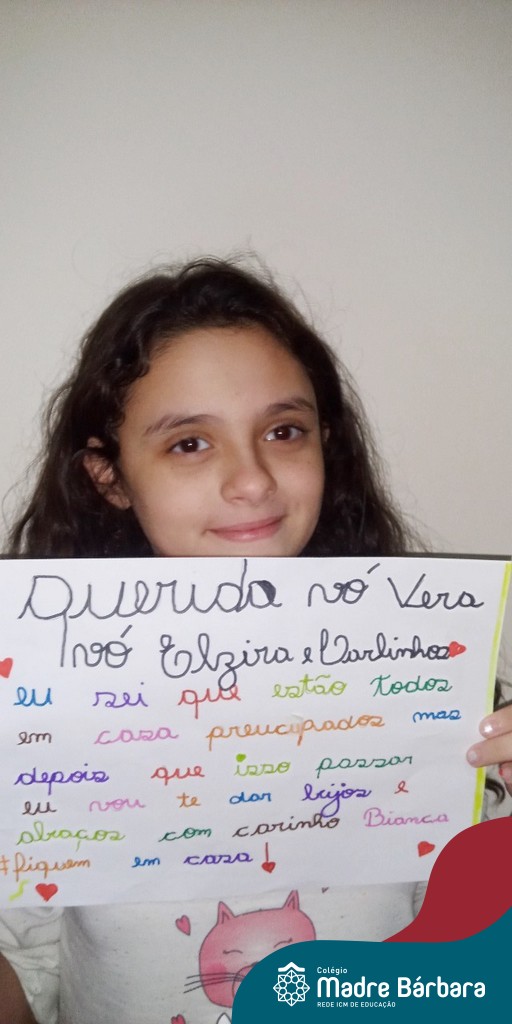 Querida vó Vera
vó Elzira e Carlinhos
eu sei que estão todos
em casa preucupados mas
depois que isso passar
eu vou te dar bijos e
abraços com carinho Bianca
#fiquem em casa!
Colégio
Madre Bárbara
REDE ICM DE EDUCAÇÃO